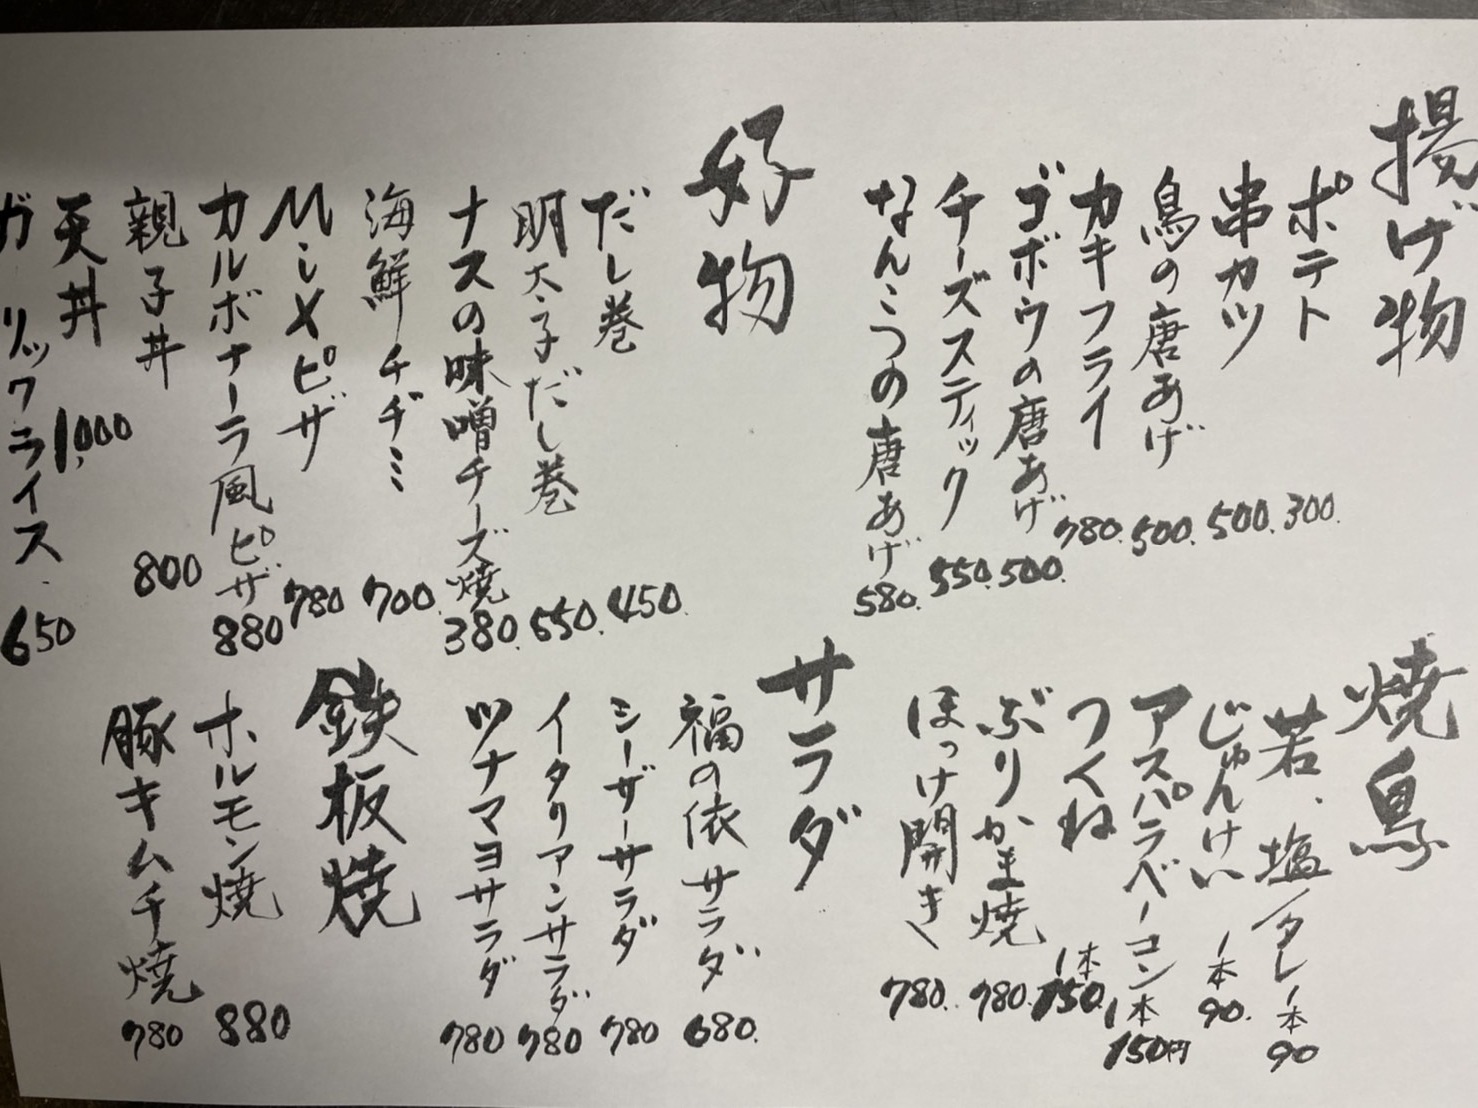 揚げ物
ポテト 300.
串カツ 500.
鳥の唐あげ 500.
カキフライ 780.
ゴボウの唐あげ 500.
チーズスティック 550.
なんこつの唐あげ 580.
好物
だし巻 450.
明太子だし巻 550.
ナスの味噌チーズ焼 380.
海鮮チヂミ 700.
Mixピザ 780
カルボナーラ風ピザ 880
親子丼 800
天丼 1,000
ガーリックライス. 650
焼鳥
若、塩/タレ 1本 90
じゅんけい 1本 90.
アスパラベーコン 1本 150円
つくね 1本 150.
ぶりかま焼 780.
ほっけ開き 780.
サラダ
福の依サラダ 680.
シーザーサラダ 780
イタリアンサラダ 780
ツナマヨサラダ 780
鉄板焼
ホルモン焼 880
豚キムチ焼 780